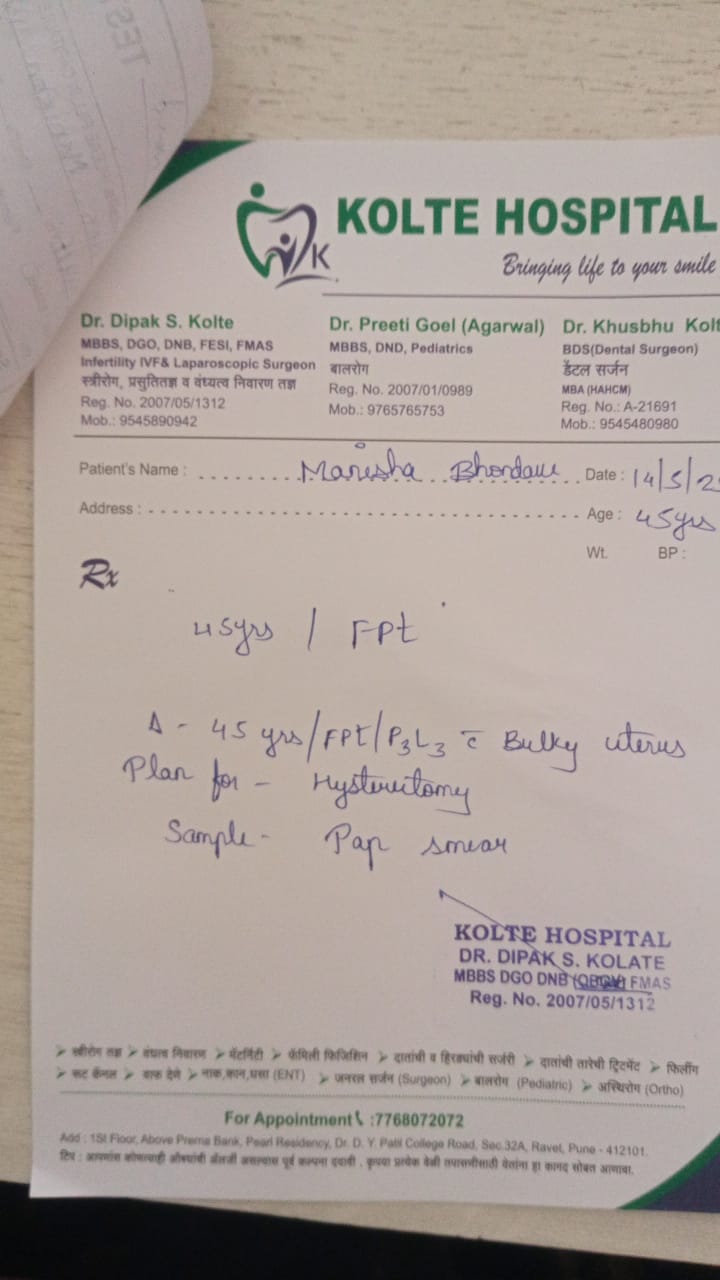 KOLTE HOSPITAL
Bringing life to your smile
K
Dr. Dipak S. Kolte
MBBS, DGO, DNB, FESI, FMAS
Infertility IVF& Laparoscopic Surgeon
स्त्रीरोग, प्रसुतितज्ञ व वंध्यत्व निवारण तज्ञ
Reg. No. 2007/05/1312
Mob.: 9545890942
Dr. Preeti Goel (Agarwal)
MBBS, DND, Pediatrics
बालरोग
Reg. No. 2007/01/0989
Mob.: 9765765753
Dr. Khusbhu Kolt
BDS(Dental Surgeon)
डेंटल सर्जन
MBA (HAHCM)
Reg. No.: A-21691
Mob.: 9545480980
Patient's Name : Manisha Date : 14/5/2
Address : Age : 45yrs
Wt. BP :
Rx
45yrs / FPt
Δ - 45 yrs/FPt/P3L3 c̄ Bulky uterus
Plan for - Hysterectomy
Sample - Pap smear
KOLTE HOSPITAL
DR. DIPAK S. KOLATE
MBBS DGO DNB (OBGY) FMAS
Reg. No. 2007/05/1312
➤ स्त्रीरोग तज्ञ ➤ वंध्यत्व निवारण ➤ मॅटर्निटी ➤ फॅमिली फिजिशिन ➤ दातांची व हिरड्यांची सर्जरी ➤ दातांची तारेची ट्रिटमेंट ➤ फिलींग
➤ रूट कॅनल ➤ दात देणे ➤ नाक,कान,घसा (ENT) ➤ जनरल सर्जन (Surgeon) ➤ बालरोग (Pediatric) ➤ अस्थिरोग (Ortho)
For Appointment :7768072072
Add : 1St Floor, Above Prerna Bank, Pearl Residency, Dr. D. Y. Patil College Road, Sec.32A, Ravet, Pune - 412101.
टिप : आपणांस कोणत्याही औषधांची ॲलर्जी असल्यास पूर्व कल्पना द्यावी , कृपया प्रत्येक वेळी तपासणीसाठी येतांना हा कागद सोबत आणावा.